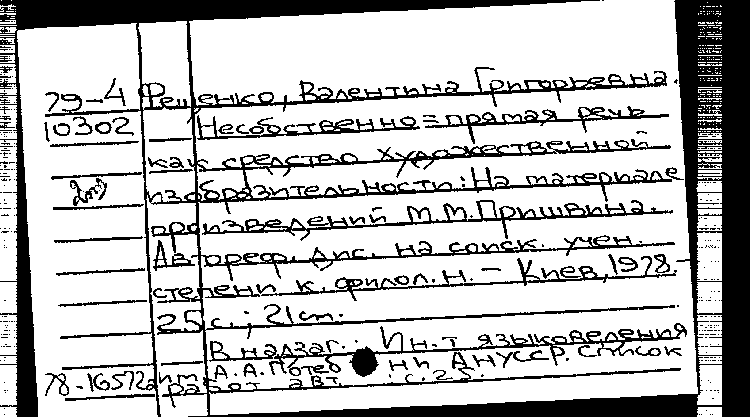 79-4 Фещенко, Валентина Григорьевна.
10302 Несобственно=прямая речь
как средство художественной
изобразительности: На материале
произведений М.М.Пришвина.
Автореф. дис. на соиск. учен.
степени к. филол. н. - Киев, 1978.-
25 с.; 21 см.
В надзаг.: Ин-т языковедения
78-16572а им. А.А.Потеб ни АН УССР. Список
работ авт. : с. 25.